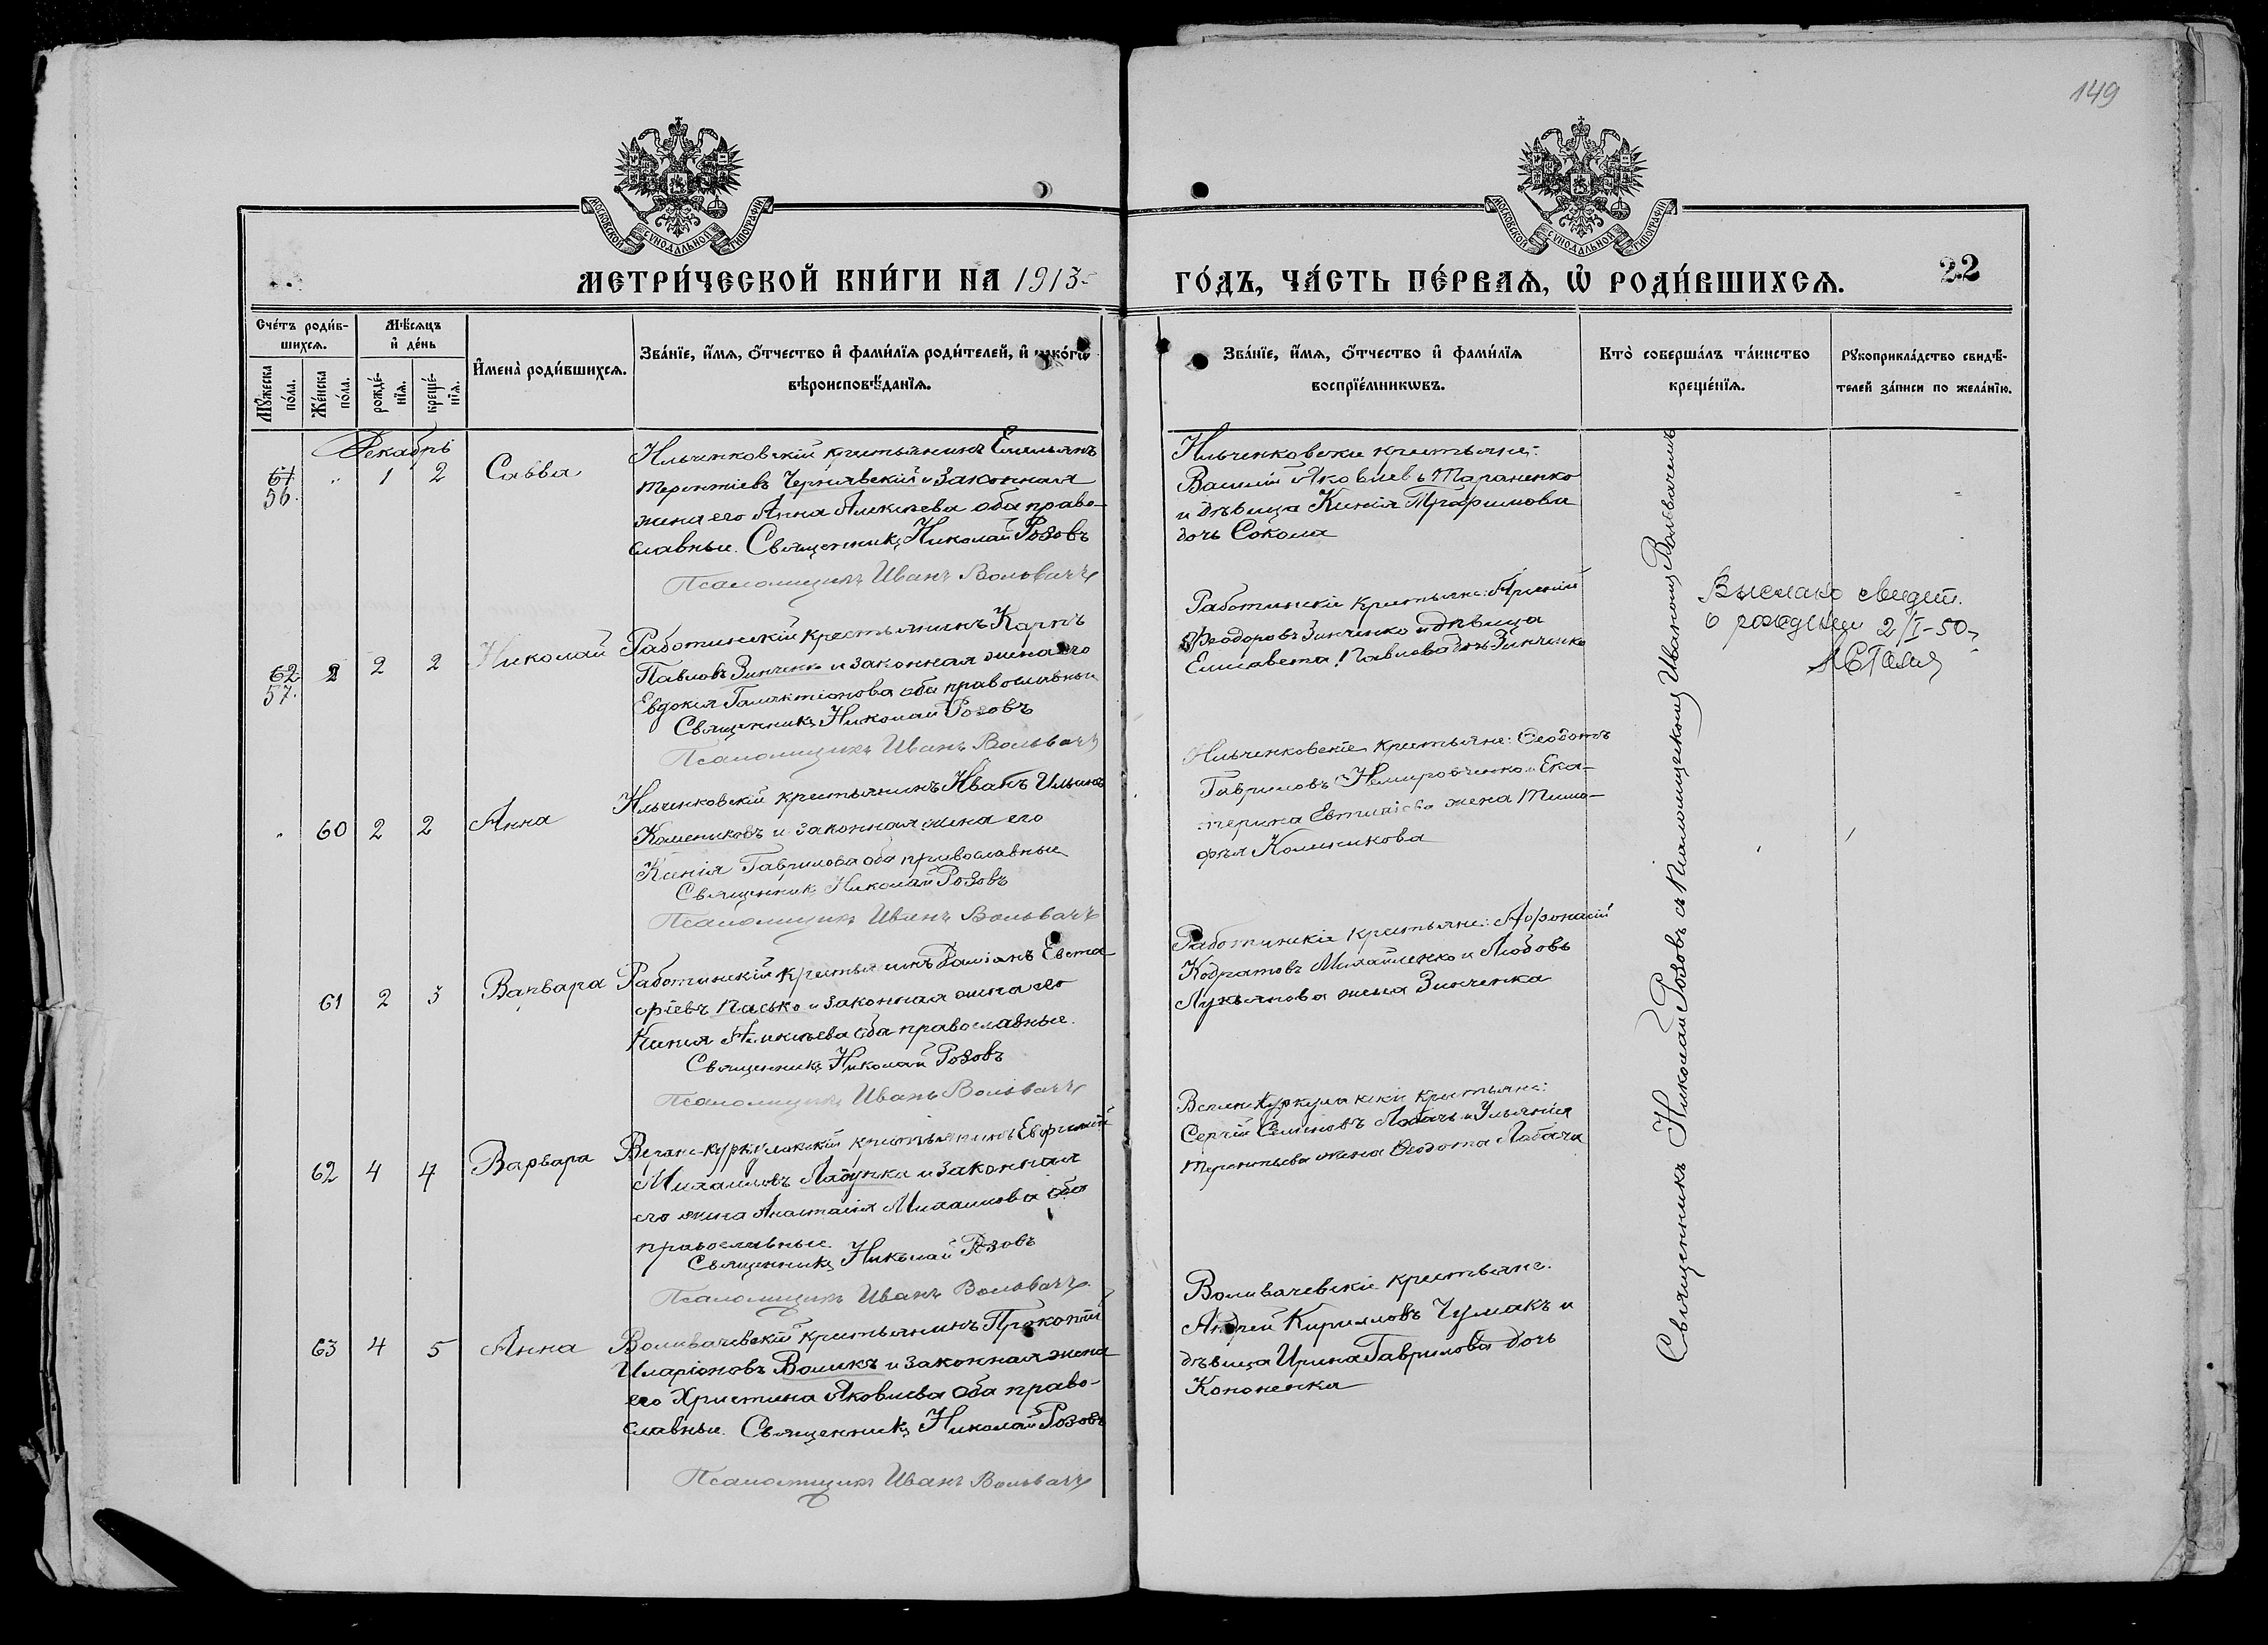 149
МОСКОВСКОЙ СѴНОДАЛЬНОЙ ТИПОГРАФІИ
МОСКОВСКОЙ СѴНОДАЛЬНОЙ ТИПОГРАФІИ
МЕТРИ́ЧЕСКОЙ КНИ́ГИ НА 1913
ГО́ДЪ, ЧА́СТЬ ПЕ́РВАѦ, Ѽ РОДИ́ВШИХСѦ.
22
Сче́тъ роди́в-
шихсѧ.
Мѣ́сѧцъ
и҆ де́нь
Мꙋ́жеска
по́ла.
Же́нска
по́ла.
рожде́-
нїѧ.
креще́-
нїѧ.
И҆мена̀ роди́вшихсѧ.
Зва́нїе, и҆́мѧ, ѻ҆́тчество и҆ фами́лїѧ роди́телей, и҆ како́гѡ
вѣроисповѣ́данїѧ.
Зва́нїе, и҆́мѧ, ѻ҆́тчество и҆ фами́лїѧ
воспрїе́мникѡвъ.
Кто̀ соверша́лъ та́инство
креще́нїѧ.
Рꙋкоприкла́дство свидѣ́-
телей за́писи по жела́нїю.
Декабрь
61
56.
"
1
2
Савва
Ильченковскій крестьянинъ Емельянъ
Терентіевъ Чернявскій и законная
жена его Анна Алексѣева оба право-
славные. Священникъ Николай Розовъ
Псаломщикъ Иванъ Вольвачъ
Ильченковскіе крестьяне:
Василій Яковлевъ Тараненко
и дѣвица Ксенія Трофимова
дочь Сокола
62
57.
2
2
2
Николай
Работинскій крестьянинъ Карпъ
Павловъ Зинченко и законная жена его
Евдокія Галактіонова оба православные
Священникъ Николай Розовъ
Псаломщикъ Иванъ Вольвачъ
Работинскіе крестьяне: Арсеній
Ѳеодоровъ Зинченко и дѣвица
Елисавета Павлова дочь Зинченко
Выслано свидет.
о рождении 2/I-50
60
2
2
Анна
Ильченковскій крестьянинъ Иванъ Ильинъ
Колениковъ и законная жена его
Ксенія Гаврилова оба православные
Священникъ Николай Розовъ
Псаломщикъ Иванъ Вольвачъ
Ильченковскіе крестьяне: Ѳеодотъ
Гавриловъ Немировченко и Ека-
терина Евтихіева жена Тимо-
фѣя Коленикова
61
2
3
Варвара
Работинскій крестьянинъ Даміанъ Евста-
фіевъ Пасько и законная жена его
Ксенія Алексѣева оба православные.
Священникъ Николай Розовъ
Псаломщикъ Иванъ Вольвачъ
Работинскіе крестьяне: Афонасій
Кодратовъ Михайленко и Любовь
Лукьянова жена Зинченка
62
4
4
Варвара
крестьянинъ Евфимій
Михаиловъ и законная
его жена Анастасія Михаилова оба
православные.
Священникъ Николай Розовъ
Псаломщикъ Иванъ Вольвачъ
крестьяне:
Сергій Семеновъ Лобачъ и Ульянія
Терентьева жена Ѳеодота Лобача
63
4
5
Анна
Воливачевскій крестьянинъ Прокопій
Иларіоновъ Воликъ и законная жена
его Христина Яковлева оба право-
славные. Священникъ Николай Розовъ
Псаломщикъ Иванъ Вольвачъ
Воливачевскіе крестьяне:
Андрей Кирилловъ Чумакъ и
дѣвица Ирина Гаврилова дочь
Кононенка
Священникъ Николай Розовъ съ псаломщикомъ Иваномъ Вольвачемъ